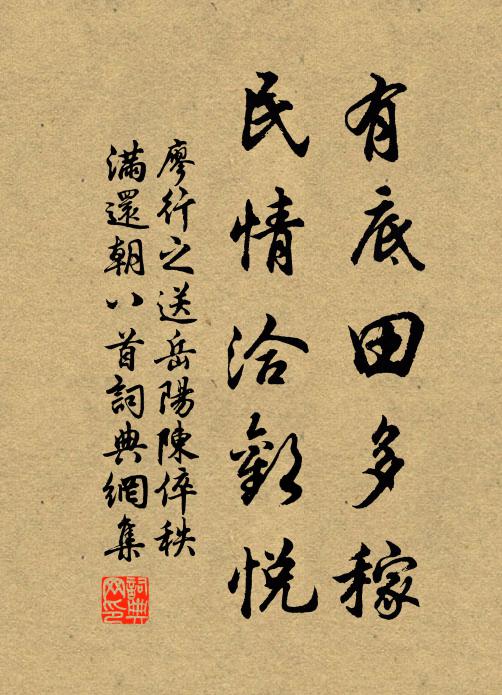 有底田多稼
民情洽歡悅
廖行之送岳陽陳倅秩
滿還朝八首詞典網集
詞典网印